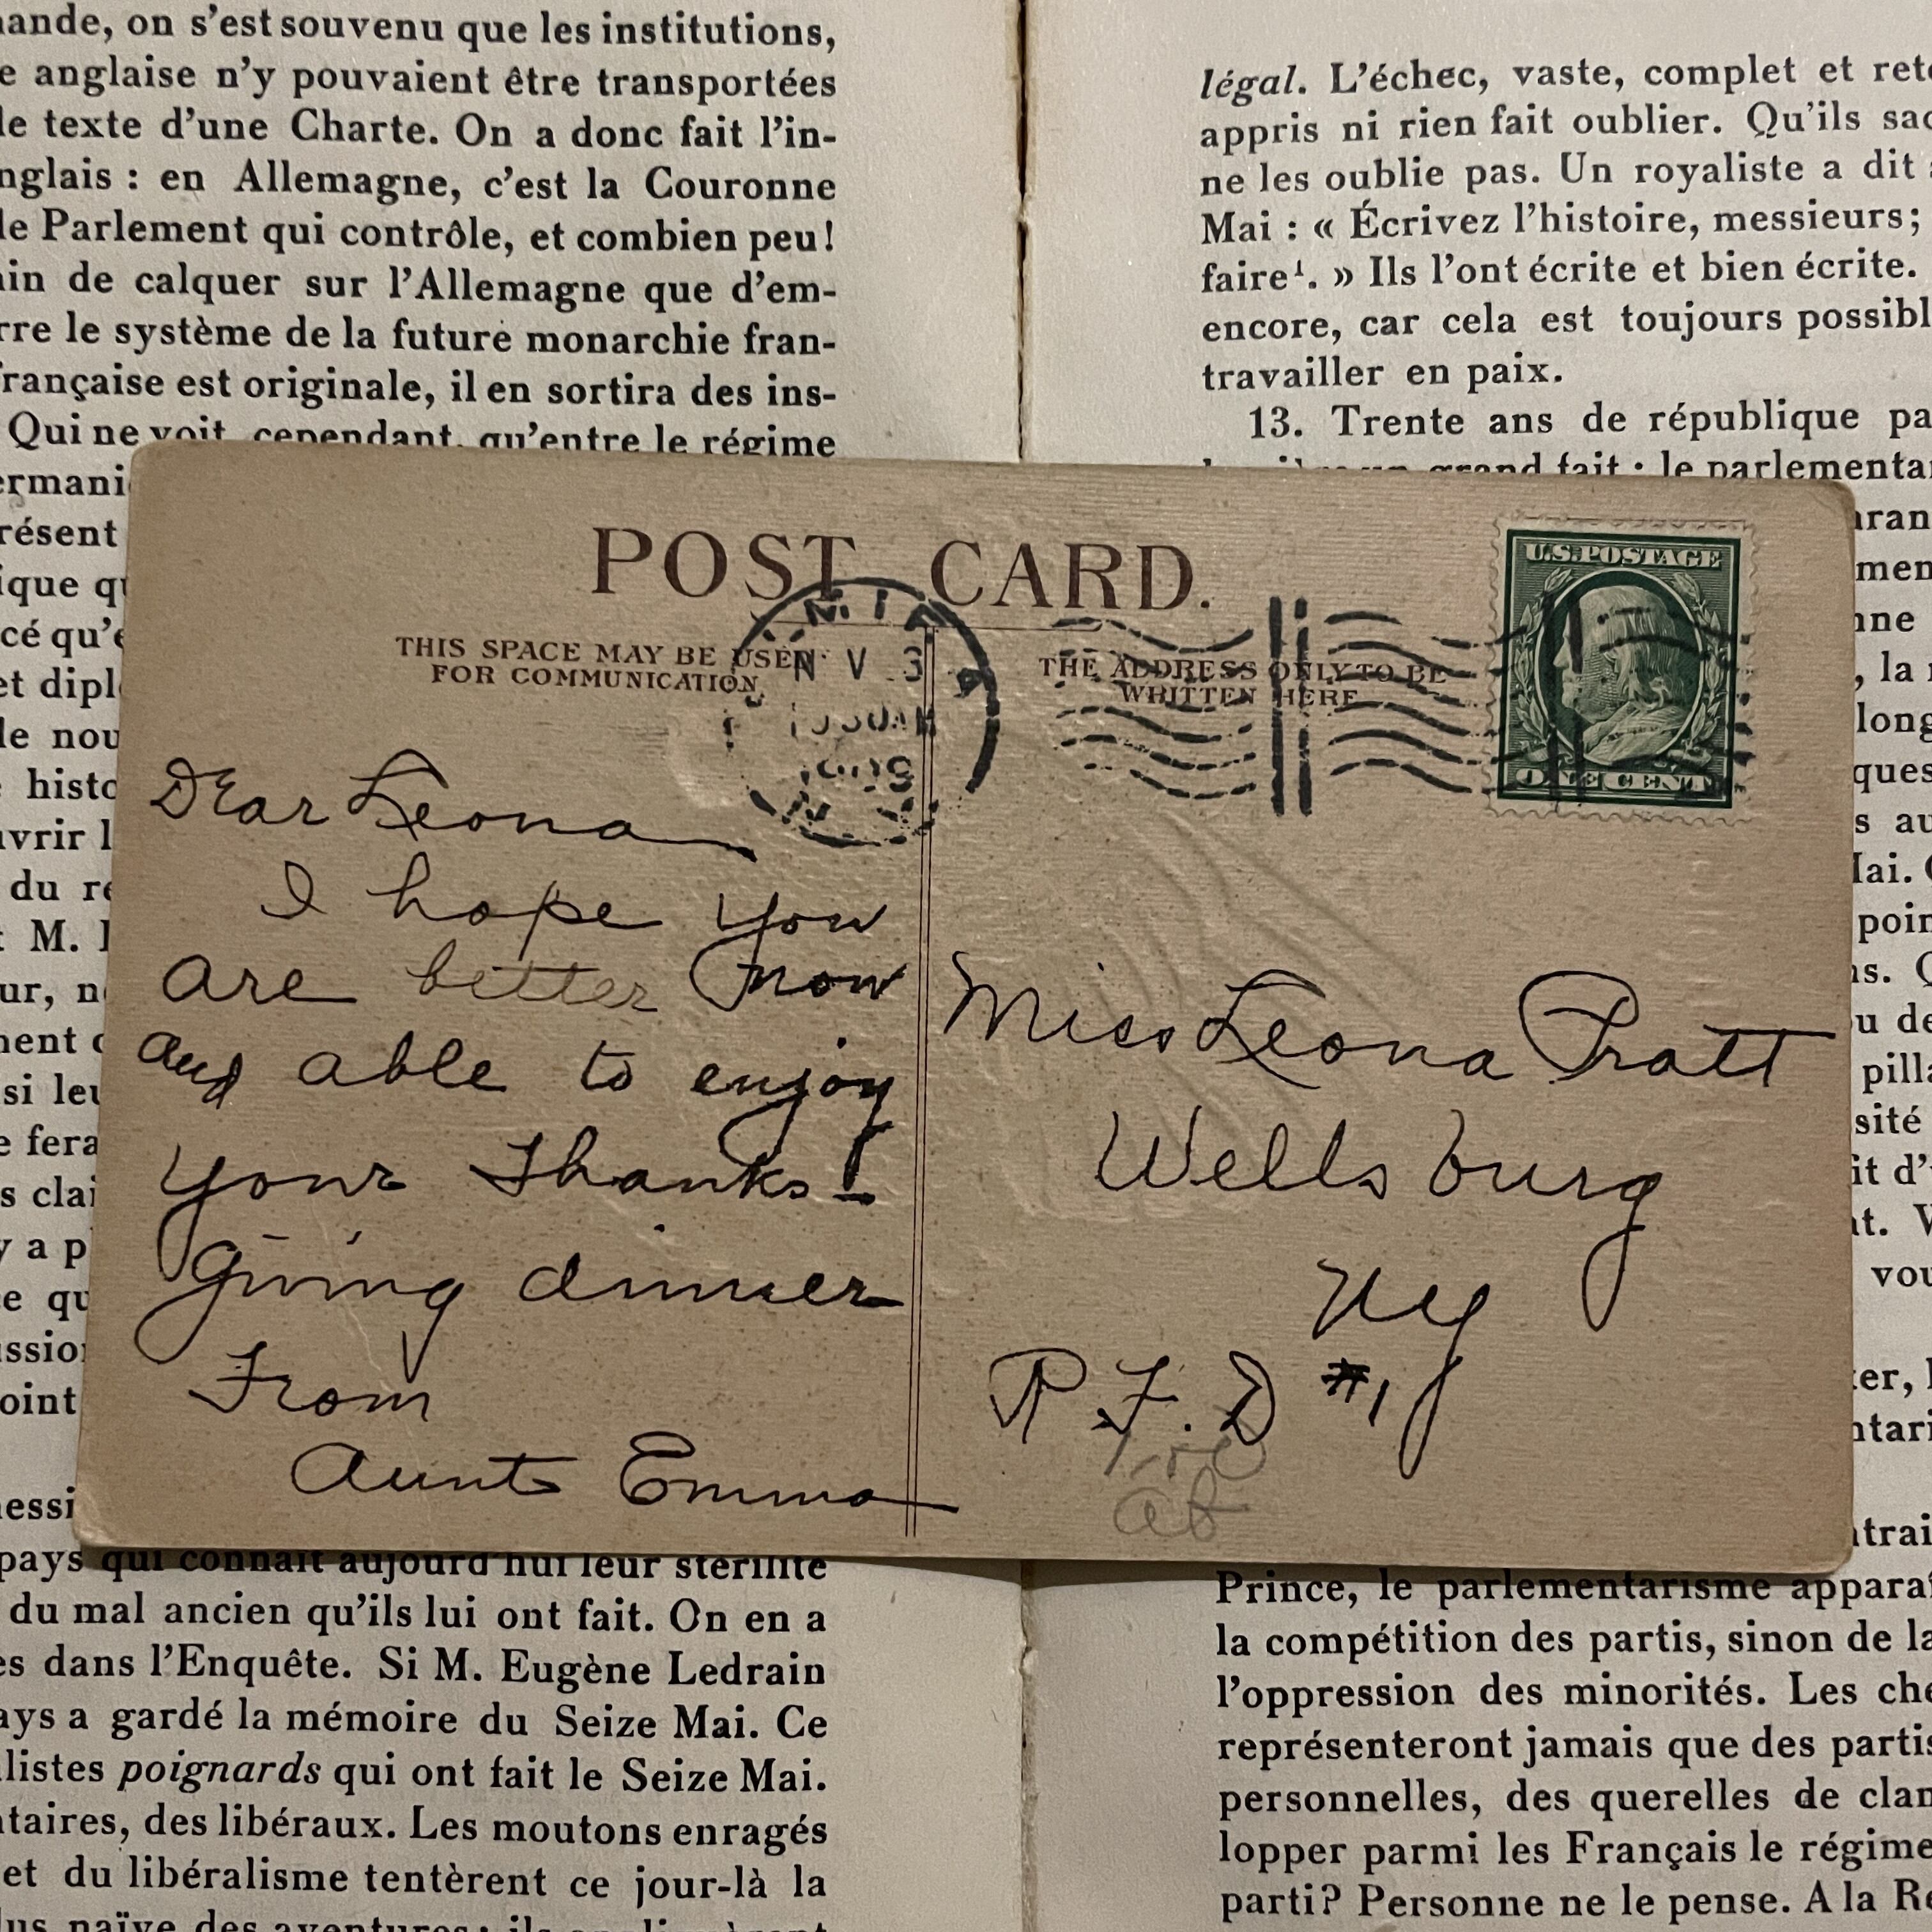 ande, on s'est souvenu que les institutions,
e anglaise n'y pouvaient être transportées
le texte d'une Charte. On a donc fait l'in-
nglais : en Allemagne, c'est la Couronne
le Parlement qui contrôle, et combien peu !
ain de calquer sur l'Allemagne que d'em-
rre le système de la future monarchie fran-
rançaise est originale, il en sortira des ins-
Qui ne voit, cependant, qu'entre le régime
ermani
résent
ique qu
cé qu'e
et dipl
le nou
histo
uvrir l
du re
M. 
ur, n
ment
si leu
e fera
s clai
y a p
ce qu
ssion
oint
essi
pays qui connaît aujourd'hui leur stérilité
du mal ancien qu'ils lui ont fait. On en a
es dans l'Enquête. Si M. Eugène Ledrain
ays a gardé la mémoire du Seize Mai. Ce
listes poignards qui ont fait le Seize Mai.
ntaires, des libéraux. Les moutons enragés
et du libéralisme tentèrent ce jour-là la
lus naïve des aventures : ils
légal. L'échec, vaste, complet et rete
appris ni rien fait oublier. Qu'ils sac
ne les oublie pas. Un royaliste a dit
Mai : « Écrivez l'histoire, messieurs ;
faire¹. » Ils l'ont écrite et bien écrite.
encore, car cela est toujours possibl
travailler en paix.
13. Trente ans de république pa
grand fait : le parlementar
aran
men
nne
, la
long
ques
s au
Mai.
poin
ns.
u de
pilla
sité
it d'
nt. V
vou
ter,
ntari
ntrai
Prince, le parlementarisme apparaî
la compétition des partis, sinon de la
l'oppression des minorités. Les che
représenteront jamais que des partis
personnelles, des querelles de clan
lopper parmi les Français le régime
parti ? Personne ne le pense. A la Ré
POST CARD.
THIS SPACE MAY BE USED
FOR COMMUNICATION.
THE ADDRESS ONLY TO BE
WRITTEN HERE
U.S. POSTAGE
ONE CENT
NOV 3
1909
Dear Leona
I hope you
are better now
and able to enjoy
your Thanks-
giving dinner
From
Aunt Emma
Miss Leona Pratt
Wellsburg
NY
R.F.D #1